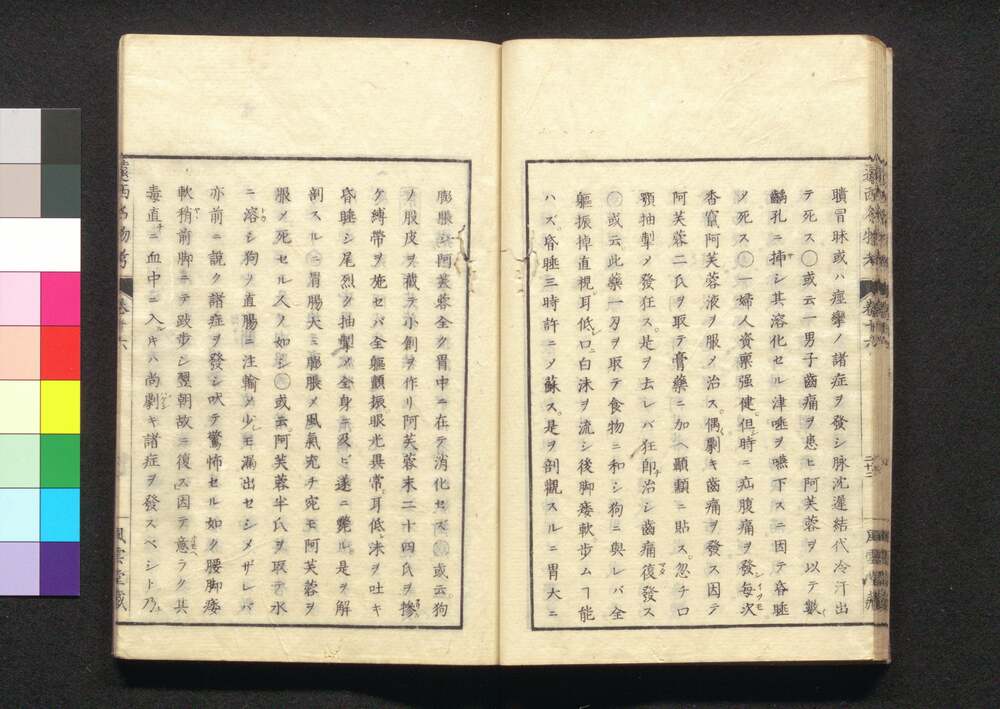 瞶冒昧或ハ痙攣ノ諸症ヲ發シ脉沈遲結代冷汗出
テ死ス〇或云一男子齒痛ヲ患ヒ阿芙蓉ヲ以テ數
齲孔ニ挿シ其溶化セル津唾ヲ嚥下スニ因テ昏睡
ソ死ス〇一婦人資禀强健但時ニ疝腹痛ヲ發毎次
杏竄阿芙蓉液ヲ服メ治ス偶劇キ齒痛ヲ發ス因テ
阿芙蓉二氏ヲ取テ膏藥ニ加ヘ顳顬ニ貼ス忽チ口
顎抽掣メ發狂ス是ヲ去レバ狂即治シ齒痛復發ス
〇或云此藥一刄ヲ取テ食物ニ和シ狗ニ與レバ全
軀振掉直視耳低口白沫ヲ流シ後脚痿軟步ムヿ能
ハズ昏睡三時許ニメ蘇ス是ヲ剖觀スルニ胃大ニ
膨脹シ阿芙蓉全ク胃中ニ在テ消化セズ〇或云狗
ノ股皮ヲ截テ小創ヲ作リ阿芙蓉末二十四氏ヲ摻
ケ縛帶ヲ施セバ全軀顫振眼光異常耳低沫ヲ吐キ
昏睡シ尾烈ク抽掣メ全身ニ及ビ遂ニ斃ル是ヲ解
剖スルニ胃腸大ニ膨脹メ風氣充チ宛モ阿芙蓉ヲ
服メ死セル人ノ如シ〇或云阿芙蓉半氏ヲ取テ水
ニ溶シ狗ノ直腸ニ注輸メ少モ漏出セシメザレバ
亦前ニ說ク諸症ヲ發シ吠テ驚怖セル如ク腰脚痿
軟稍前脚ニテ跂步シ翌朝故ニ復ス因テ意ラク其
毒直ニ血中ニ入ルキハ尚劇キ諸症ヲ發スベシト乃
遠西名物考
卷十六
風雲堂藏